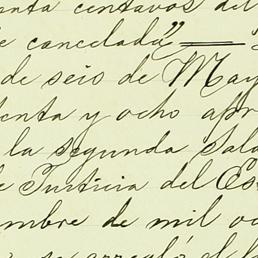 enta centavos del
e cancelada" =
de seis de May
enta y ocho apr
la segunda Sala
e Justicia del Es
mbre de mil oc
se arregló el